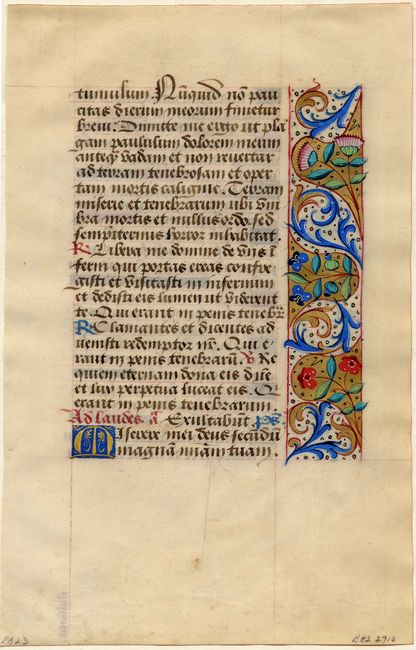 tumulum. Nũquid nõ pau
citas dierum meorum finietur
brevi. Dimitte me ergo ut plã
gam paululum dolorem meum
anteq̃ vadam et non revertar
ad terram tenebrosam et oper
tam mortis caligine. Terram
miserie et tenebrarum ubi um
bra mortis et nullus ordo. sed
sempiternus horror inhabitat.
R Libera me domine de viis ĩ
ferni qui portas ereas confre
gisti et visitasti in infernum
et dedisti eis lumen ut viderent
te. Qui erant in penis tenebr̃.
R Clamantes et dicentes ad
venisti redemptor nr̃. Qui e
rant in penis tenebrarũ. V Re
quiem eternam dona eis dñe
et lux perpetua luceat eis. Q
erant in penis tenebrarum.
Ad laudes. ã Exultabũt. ps.
Miserere mei deus secundũ
magnã miãm tuam.
BH2 2910